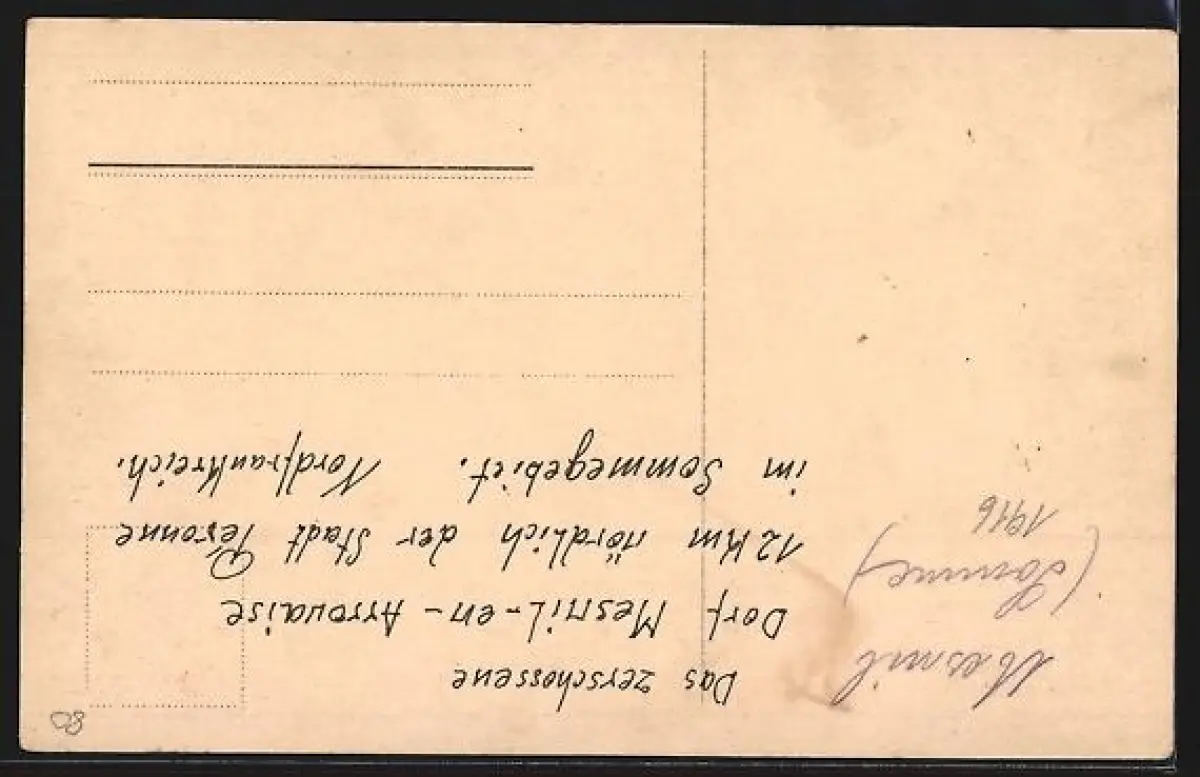 Mesnil
(Somme)
1916
Das zerschossene
Dorf Mesnil-en-Arrouaise
12 Km nördlich der Stadt Peronne
im Sommegebiet. Nordfrankreich.
80